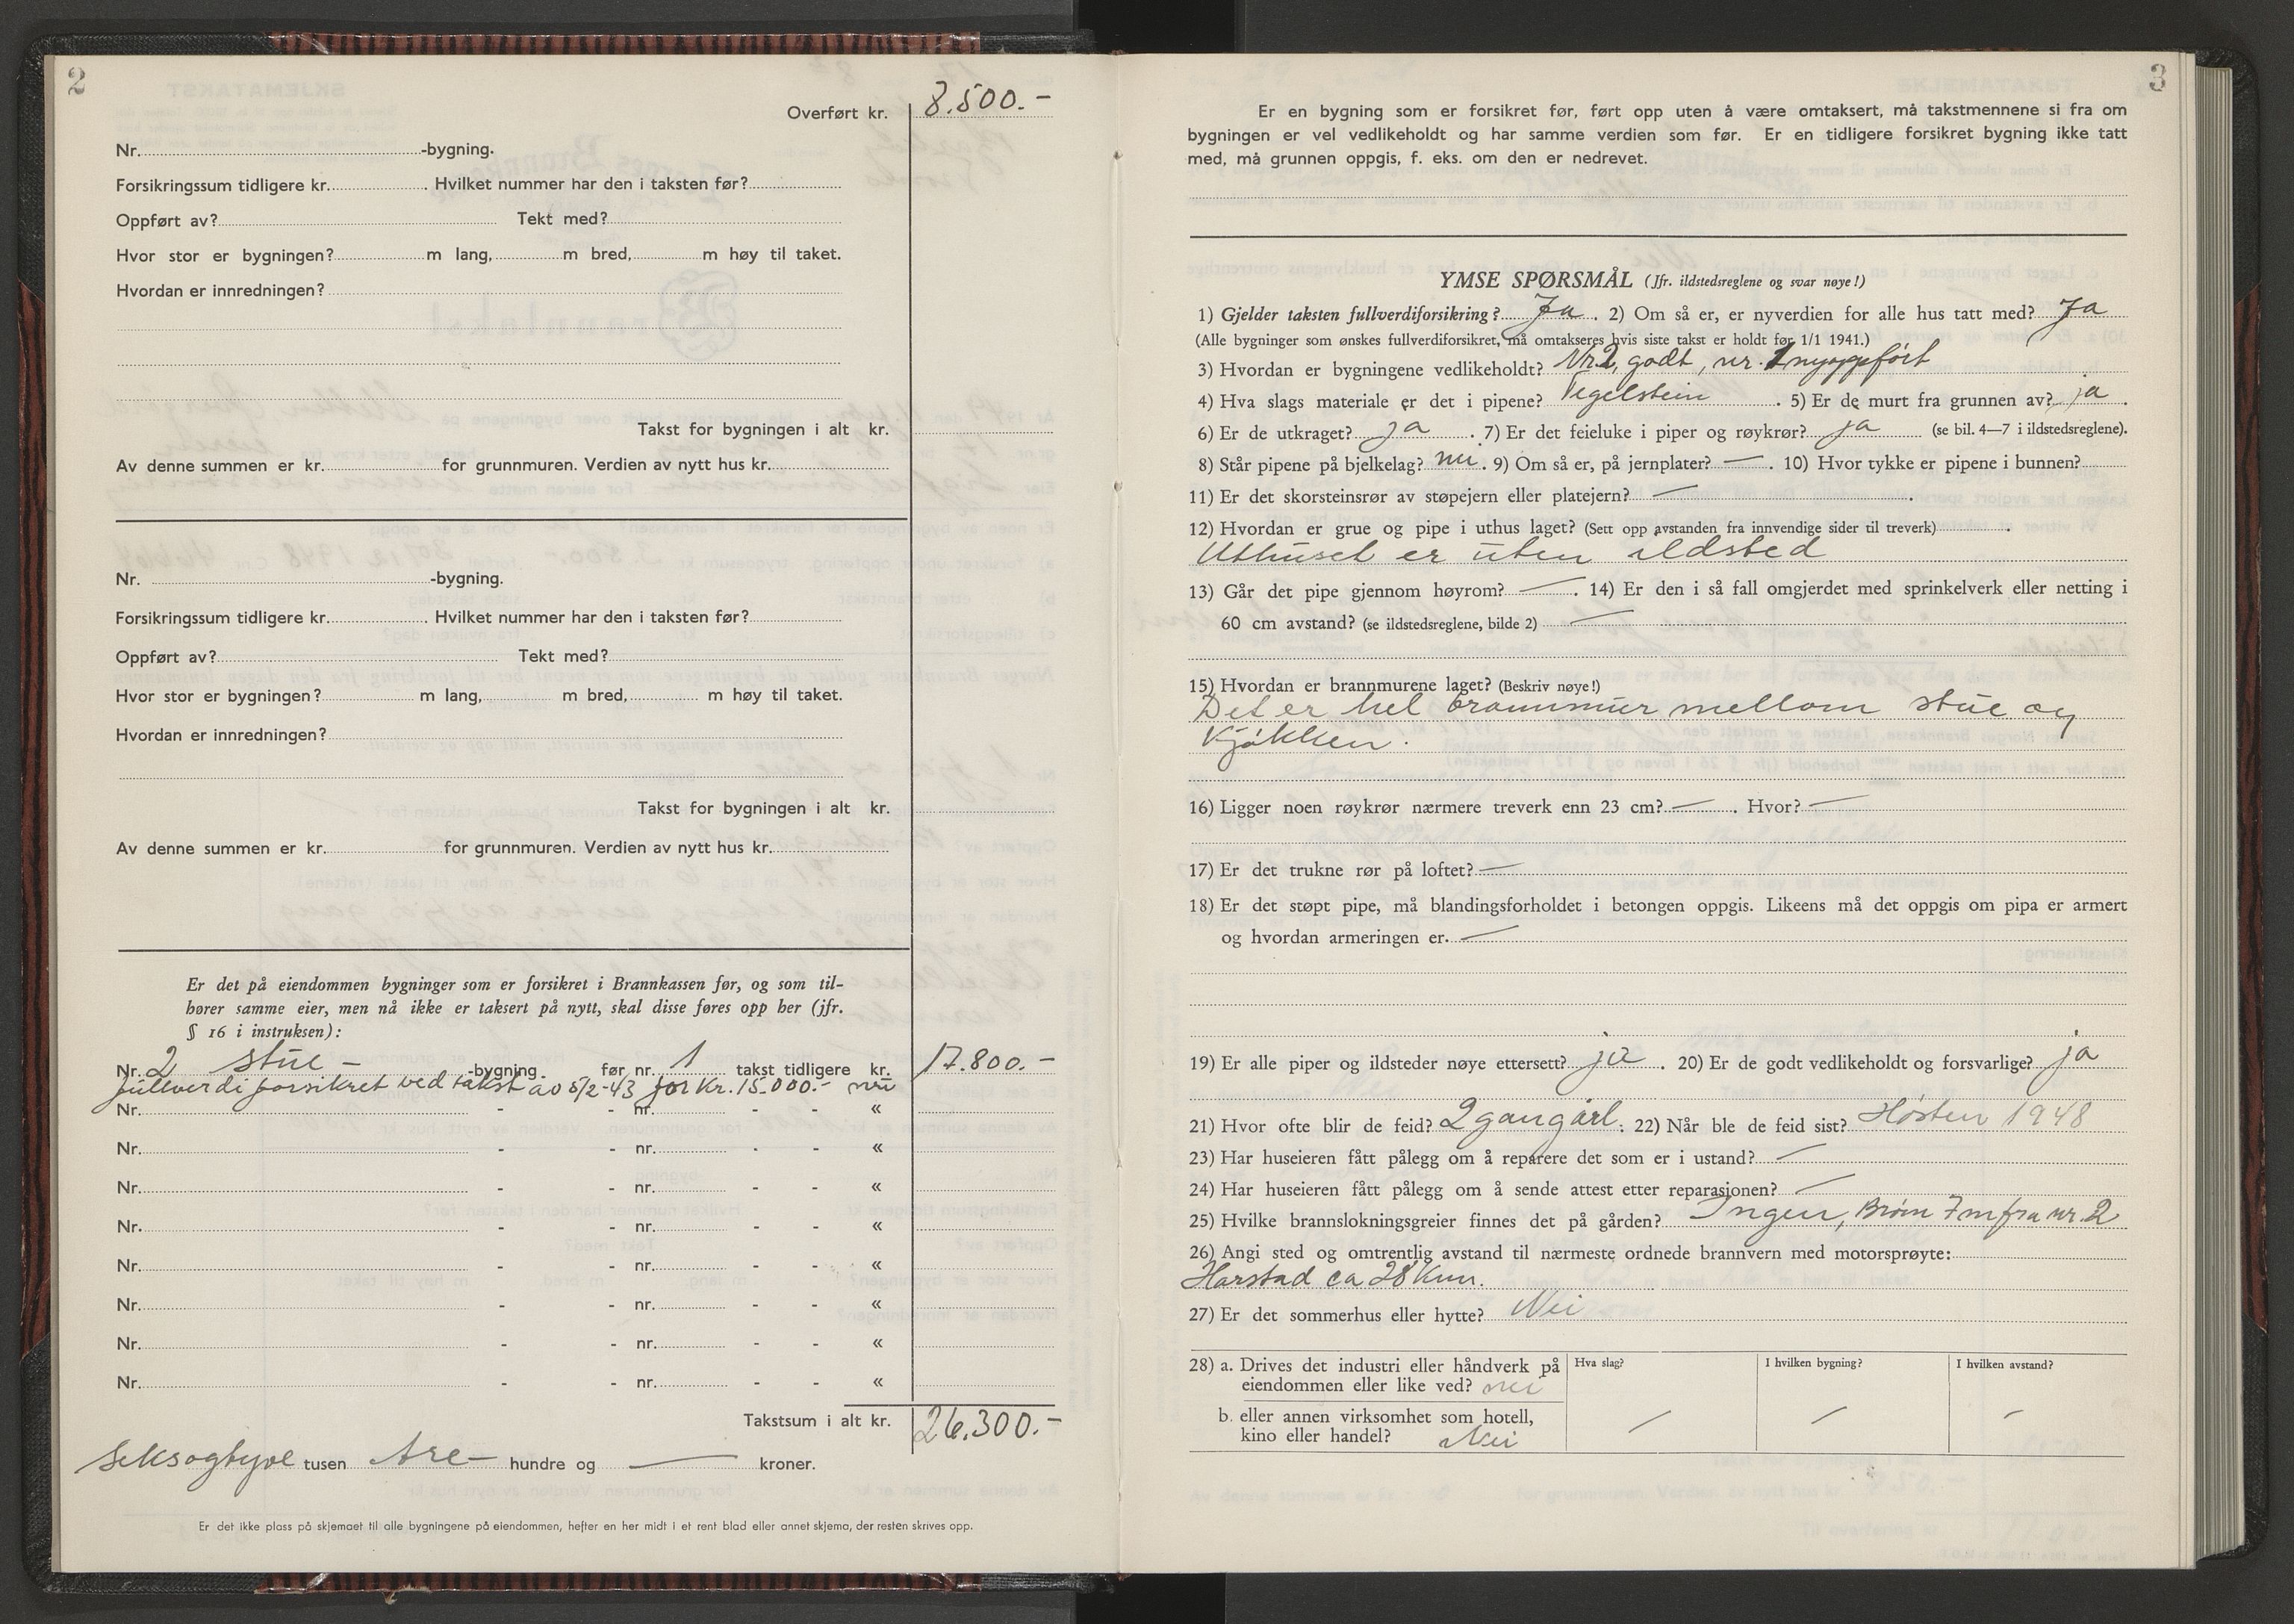 2
Overført kr. 8.500.-
Nr. -bygning.
Forsikringssum tidligere kr. . Hvilket nummer har den i taksten før?
Oppført av? Tekt med?
Hvor stor er bygningen? m lang, m bred, m høy til taket.
Hvordan er innredningen?
Takst for bygningen i alt kr.
Av denne summen er kr. for grunnmuren. Verdien av nytt hus kr.
Nr. -bygning.
Forsikringssum tidligere kr. . Hvilket nummer har den i taksten før?
Oppført av? Tekt med?
Hvor stor er bygningen? m lang, m bred, m høy til taket.
Hvordan er innredningen?
Takst for bygningen i alt kr.
Av denne summen er kr. for grunnmuren. Verdien av nytt hus kr.
Er det på eiendommen bygninger som er forsikret i Brannkassen før, og som til-
hører samme eier, men nå ikke er taksert på nytt, skal disse føres opp her (jfr.
§ 16 i instruksen):
Nr. 2 stue - -bygning før nr. 1 takst tidligere kr. 17.800.-
fullverdiforsikret ved takst av 5/2-43 for kr. 15.000.-
Nr. - - nr. - - «
Nr. - - nr. - - «
Nr. - - nr. - - «
Nr. - - nr. - - «
Nr. - - nr. - - «
Nr. - - nr. - - «
Nr. - - nr. - - «
Nr. - - nr. - - «
Takstsum i alt kr. 26.300.-
Seksogtyve tusen tre - hundre og — kroner.
Er det ikke plass på skjemaet til alle bygningene på eiendommen, hefter en her midt i et rent blad eller annet skjema, der resten skrives opp.
3
Er en bygning som er forsikret før, ført opp uten å være omtaksert, må takstmennene si fra om
bygningen er vel vedlikeholdt og har samme verdien som før. Er en tidligere forsikret bygning ikke tatt
med, må grunnen oppgis, f. eks. om den er nedrevet.
YMSE SPØRSMÅL (Jfr. ildstedsreglene og svar nøye!)
1) Gjelder taksten fullverdiforsikring? Ja . 2) Om så er, er nyverdien for alle hus tatt med? Ja
(Alle bygninger som ønskes fullverdiforsikret, må omtakseres hvis siste takst er holdt før 1/1 1941.)
3) Hvordan er bygningene vedlikeholdt? Nr. 2, godt, nr. 1 nyoppført
4) Hva slags materiale er det i pipene? Tegelstein . 5) Er de murt fra grunnen av? ja .
6) Er de utkraget? ja . 7) Er det feieluke i piper og røykrør? ja (se bil. 4—7 i ildstedsreglene).
8) Står pipene på bjelkelag? nei . 9) Om så er, på jernplater? — . 10) Hvor tykke er pipene i bunnen?
11) Er det skorsteinsrør av støpejern eller platejern? — .
12) Hvordan er grue og pipe i uthus laget? (Sett opp avstanden fra innvendige sider til treverk) .
Uthuset er uten ildsted
13) Går det pipe gjennom høyrom? — . 14) Er den i så fall omgjerdet med sprinkelverk eller netting i
60 cm avstand? (se ildstedsreglene, bilde 2) —
15) Hvordan er brannmurene laget? (Beskriv nøye!)
Det er hel brannmur mellom stue og
kjøkken.
16) Ligger noen røykrør nærmere treverk enn 23 cm? — . Hvor? —
17) Er det trukne rør på loftet? —
18) Er det støpt pipe, må blandingsforholdet i betongen oppgis. Likeens må det oppgis om pipa er armert
og hvordan armeringen er. —
19) Er alle piper og ildsteder nøye ettersett? ja . 20) Er de godt vedlikeholdt og forsvarlige? ja
21) Hvor ofte blir de feid? 2 gang årl. . 22) Når ble de feid sist? Høsten 1948
23) Har huseieren fått pålegg om å reparere det som er i ustand? —
24) Har huseieren fått pålegg om å sende attest etter reparasjonen? —
25) Hvilke brannslokningsgreier finnes det på gården? Ingen, Brønn 7 m fra nr. 2
26) Angi sted og omtrentlig avstand til nærmeste ordnede brannvern med motorsprøyte:
Harstad ca 28 km.
27) Er det sommerhus eller hytte? Nei
28) a. Drives det industri eller håndverk på Hva slag? I hvilken bygning? I hvilken avstand?
eiendommen eller like ved? nei
b. eller annen virksomhet som hotell, — — —
kino eller handel? Nei